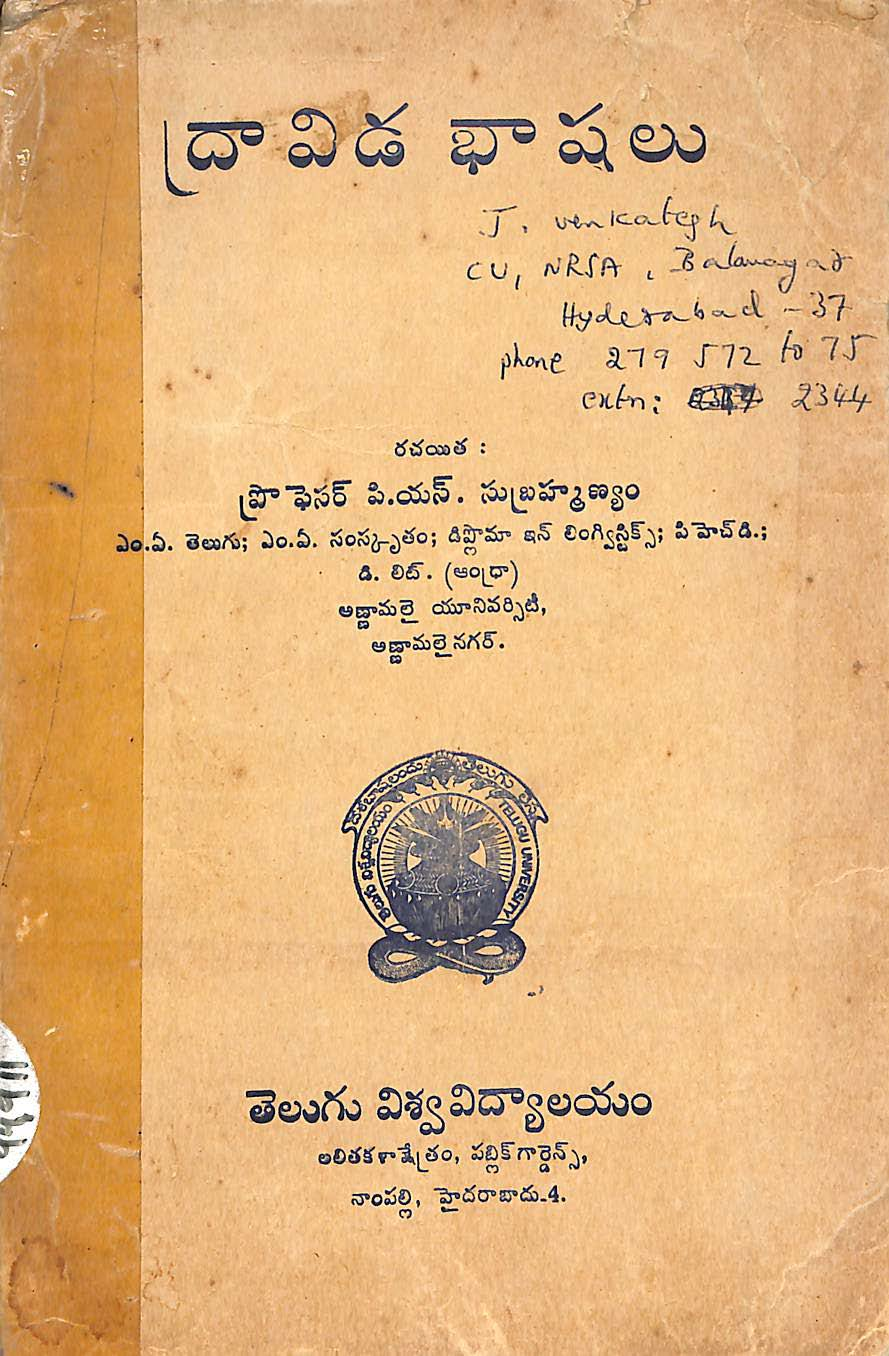 ద్రావిడ భాషలు
J. venkatesh
CU, NRSA, Balanagar
Hyderabad - 37
phone 279 572 to 75
extn: 2344
రచయిత :
ప్రొఫెసర్ పి.యస్. సుబ్రహ్మణ్యం
ఎం.ఏ. తెలుగు; ఎం.ఏ. సంస్కృతం; డిప్లొమా ఇన్ లింగ్విస్టిక్స్; పిహెచ్‌డి.;
డి. లిట్. (ఆంధ్రా)
అణ్ణామలై యూనివర్సిటీ,
అణ్ణామలైనగర్.
దేశభాషలందు తెలుగు లెస్స
తెలుగు విశ్వవిద్యాలయం
TELUGU UNIVERSITY
తెలుగు విశ్వవిద్యాలయం
లలితకళాక్షేత్రం, పబ్లిక్ గార్డెన్స్,
నాంపల్లి, హైదరాబాదు-4.